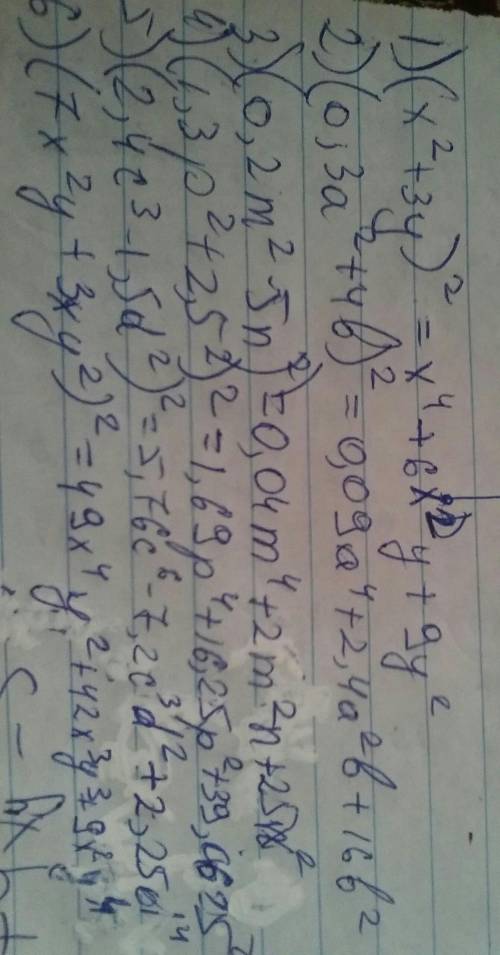 1) (x²+3y)² = x⁴+6x²y+9y²
2) (0,3a²+4b)² = 0,09a⁴+2,4a²b+16b²
3) (0,2m²-5n)² = 0,04m⁴+2m²n+25n²
4) (1,3p²+2,5²)² = 1,69p⁴+16,25p²+39,0625²
5) (2,4c³-1,5d²)² = 5,76c⁶-7,2c³d²+2,25d⁴
6) (7x²y+3xy²)² = 49x⁴y²+42x³y³+9x²y⁴